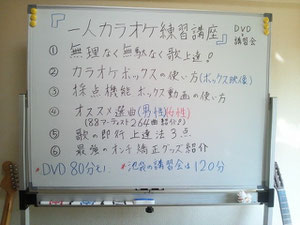 『一人カラオケ練習講座』DVD講習会
① 無理なく無駄なく歌上達!
② カラオケボックスの使い方(ボックス映像)
③ 採点機能 ボックス動画の使い方
④ オススメ選曲(男性)(女性)
(88アーティスト264曲紹介)
⑤ 歌の即行上達法3点
⑥ 最強のオンチ矯正グッズ紹介
*DVD80分
*池袋の講習会は120分